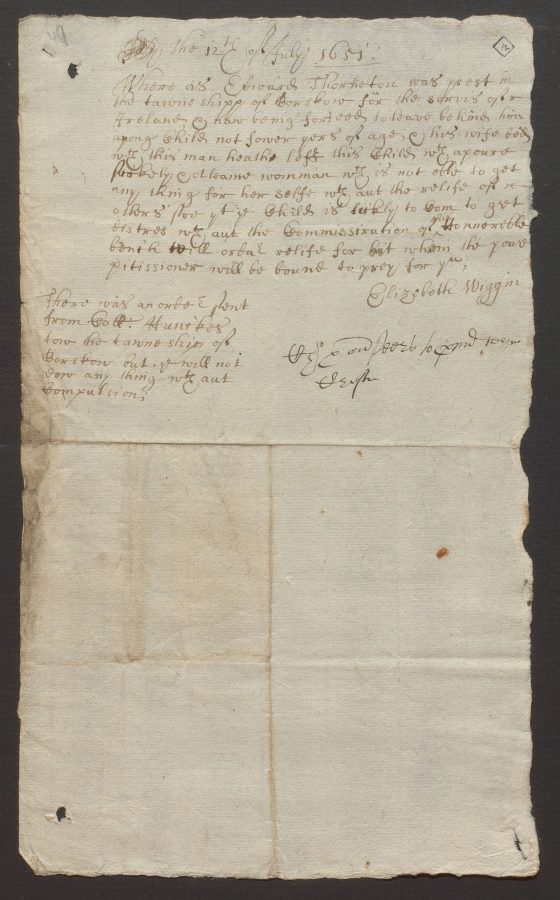 12
the 12th of July 1651:
Where as Edward Thorneton was prest in
the towne shipp of Gorskow for the sarvis of
Ireland & haw being forsed to leave behind him
ayong Child not fower yers of age, & his wife ded
wch this man heathe left this Child wth a poure
seekely woinman wch is not able to get
any thing for her selfe wth aut the relife of
others soe yt ye Child is likly to Com to get
distres wth aut the Commissiration of Honnereble
bench will order relife for but whom the poure
pitissioner will be bound to prey for yu,
Elizebeth Wiggin
There was an order sent
from Coll: 
tow the towneship of
Gorskow but ye will not
dow any thing wth aut
Compulsion: